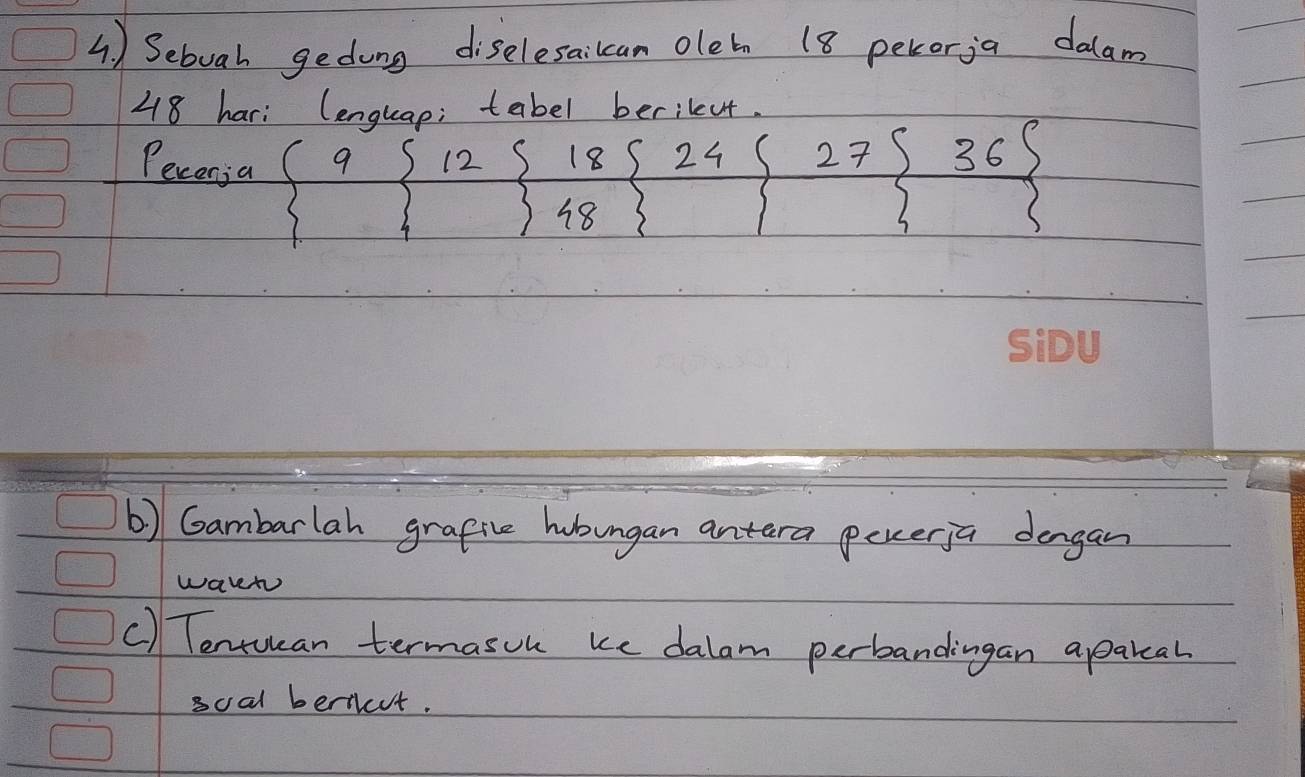 4.) Sebuah gedung diselesaikan oleh 18 pekerja dalam
48 hari lengkapi tabel berikut.
Pekerja 9 12 18 24 27 36
48
SiDU
b.) Gambarlah grafik hubungan antara pekerja dengan
waktu
c.) Tentukan termasuk ke dalam perbandingan apakah
soal berikut.